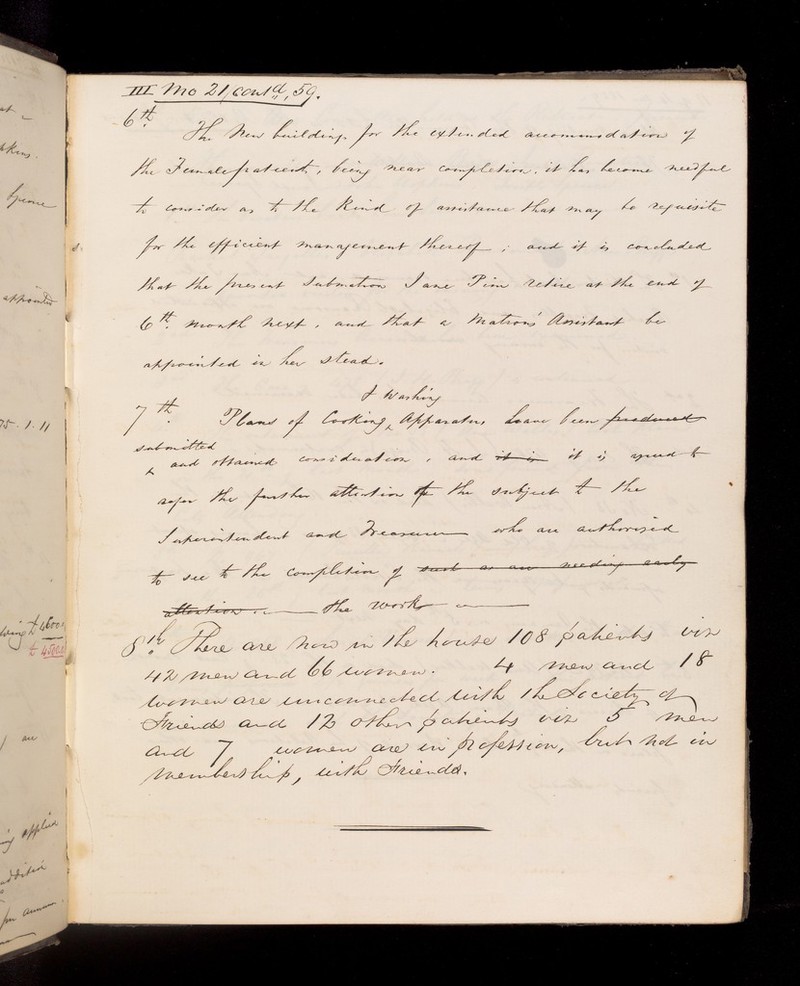 III Mo 21, contd, 59.
6th. The New building for the extended accommodation of
the Female patients, being near completion, it has become needful
to consider as to the kind of assistance that may be requisite
for the efficient management thereof; and it is concluded
that the present Submatron Jane Pim retire at the end of
6th. month next, and that a Matron's Assistant be
appointed in her stead.
& Washing
7th. Plans of Cooking ^ Apparatus have been produced
submitted
^ and obtained consideration, and it is it is agreed to
refer the further attention of the subject to the
Superintendent and Treasurer who are authorised
to see to the completion of such as are needing early
attention. the works
8th. There are now in the house 108 patients viz
42 men and 66 women. 4 men and 18
women are unconnected with the Society of
Friends and 12 other patients viz 5 men
and 7 women are in profession, but not in
membership, with Friends.
appointed
75.1.11
are
applied
addition
per annum